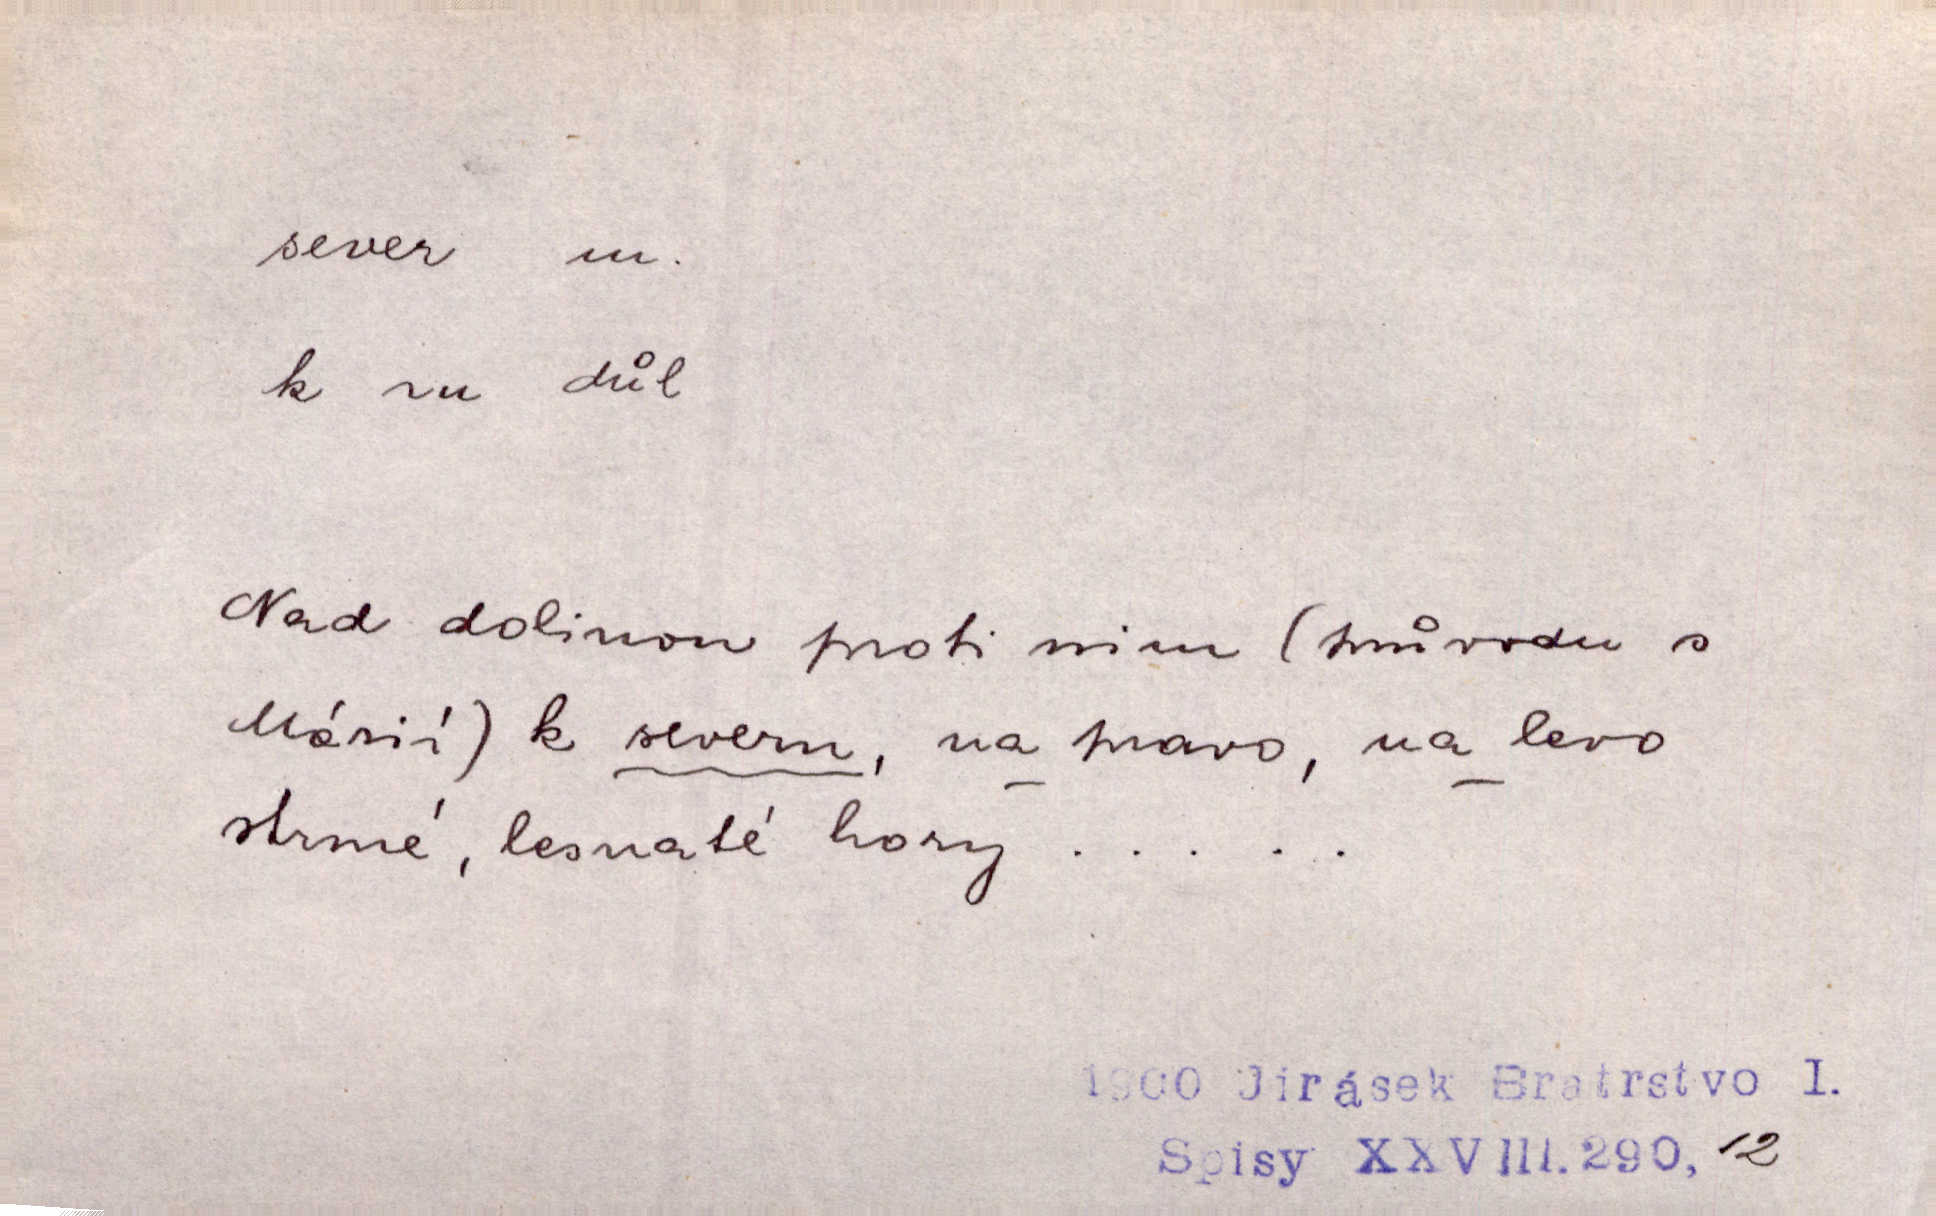 sever m.
k ru důl
Nad dolinou proti nim (průvodu s
Márií) k severu, na pravo, na levo
strmé, lesnaté hory . . . . .
1900 Jirásek Bratrstvo I.
Spisy XXVIII.290, 12